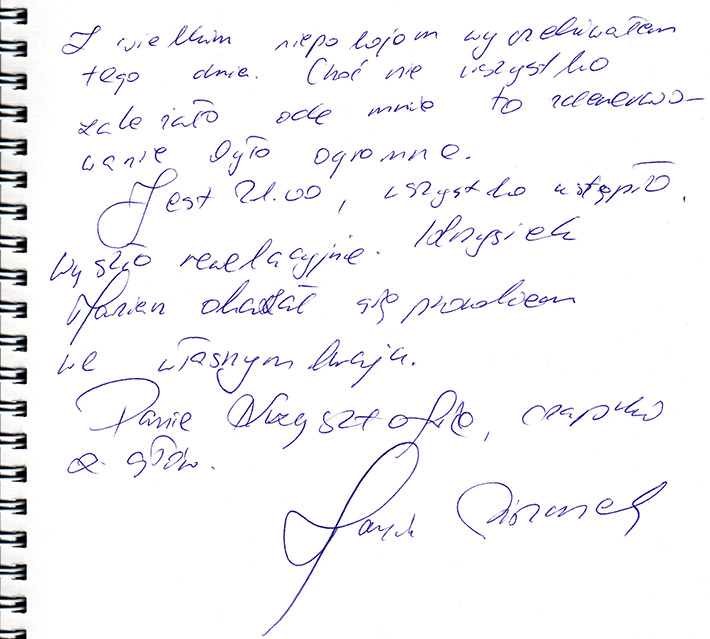 Z wielkim niepokojem wyczekiwałem
tego dnia. Choć nie wszystko
zależało ode mnie to zdenerwo-
wanie było ogromne.
Jest 21.00, wszystko ustąpiło.
Wyszło rewelacyjnie. Krzysiek
okazał się prorokiem
we własnym kraju.
Panie Krzysztofie, czapki
z głów.